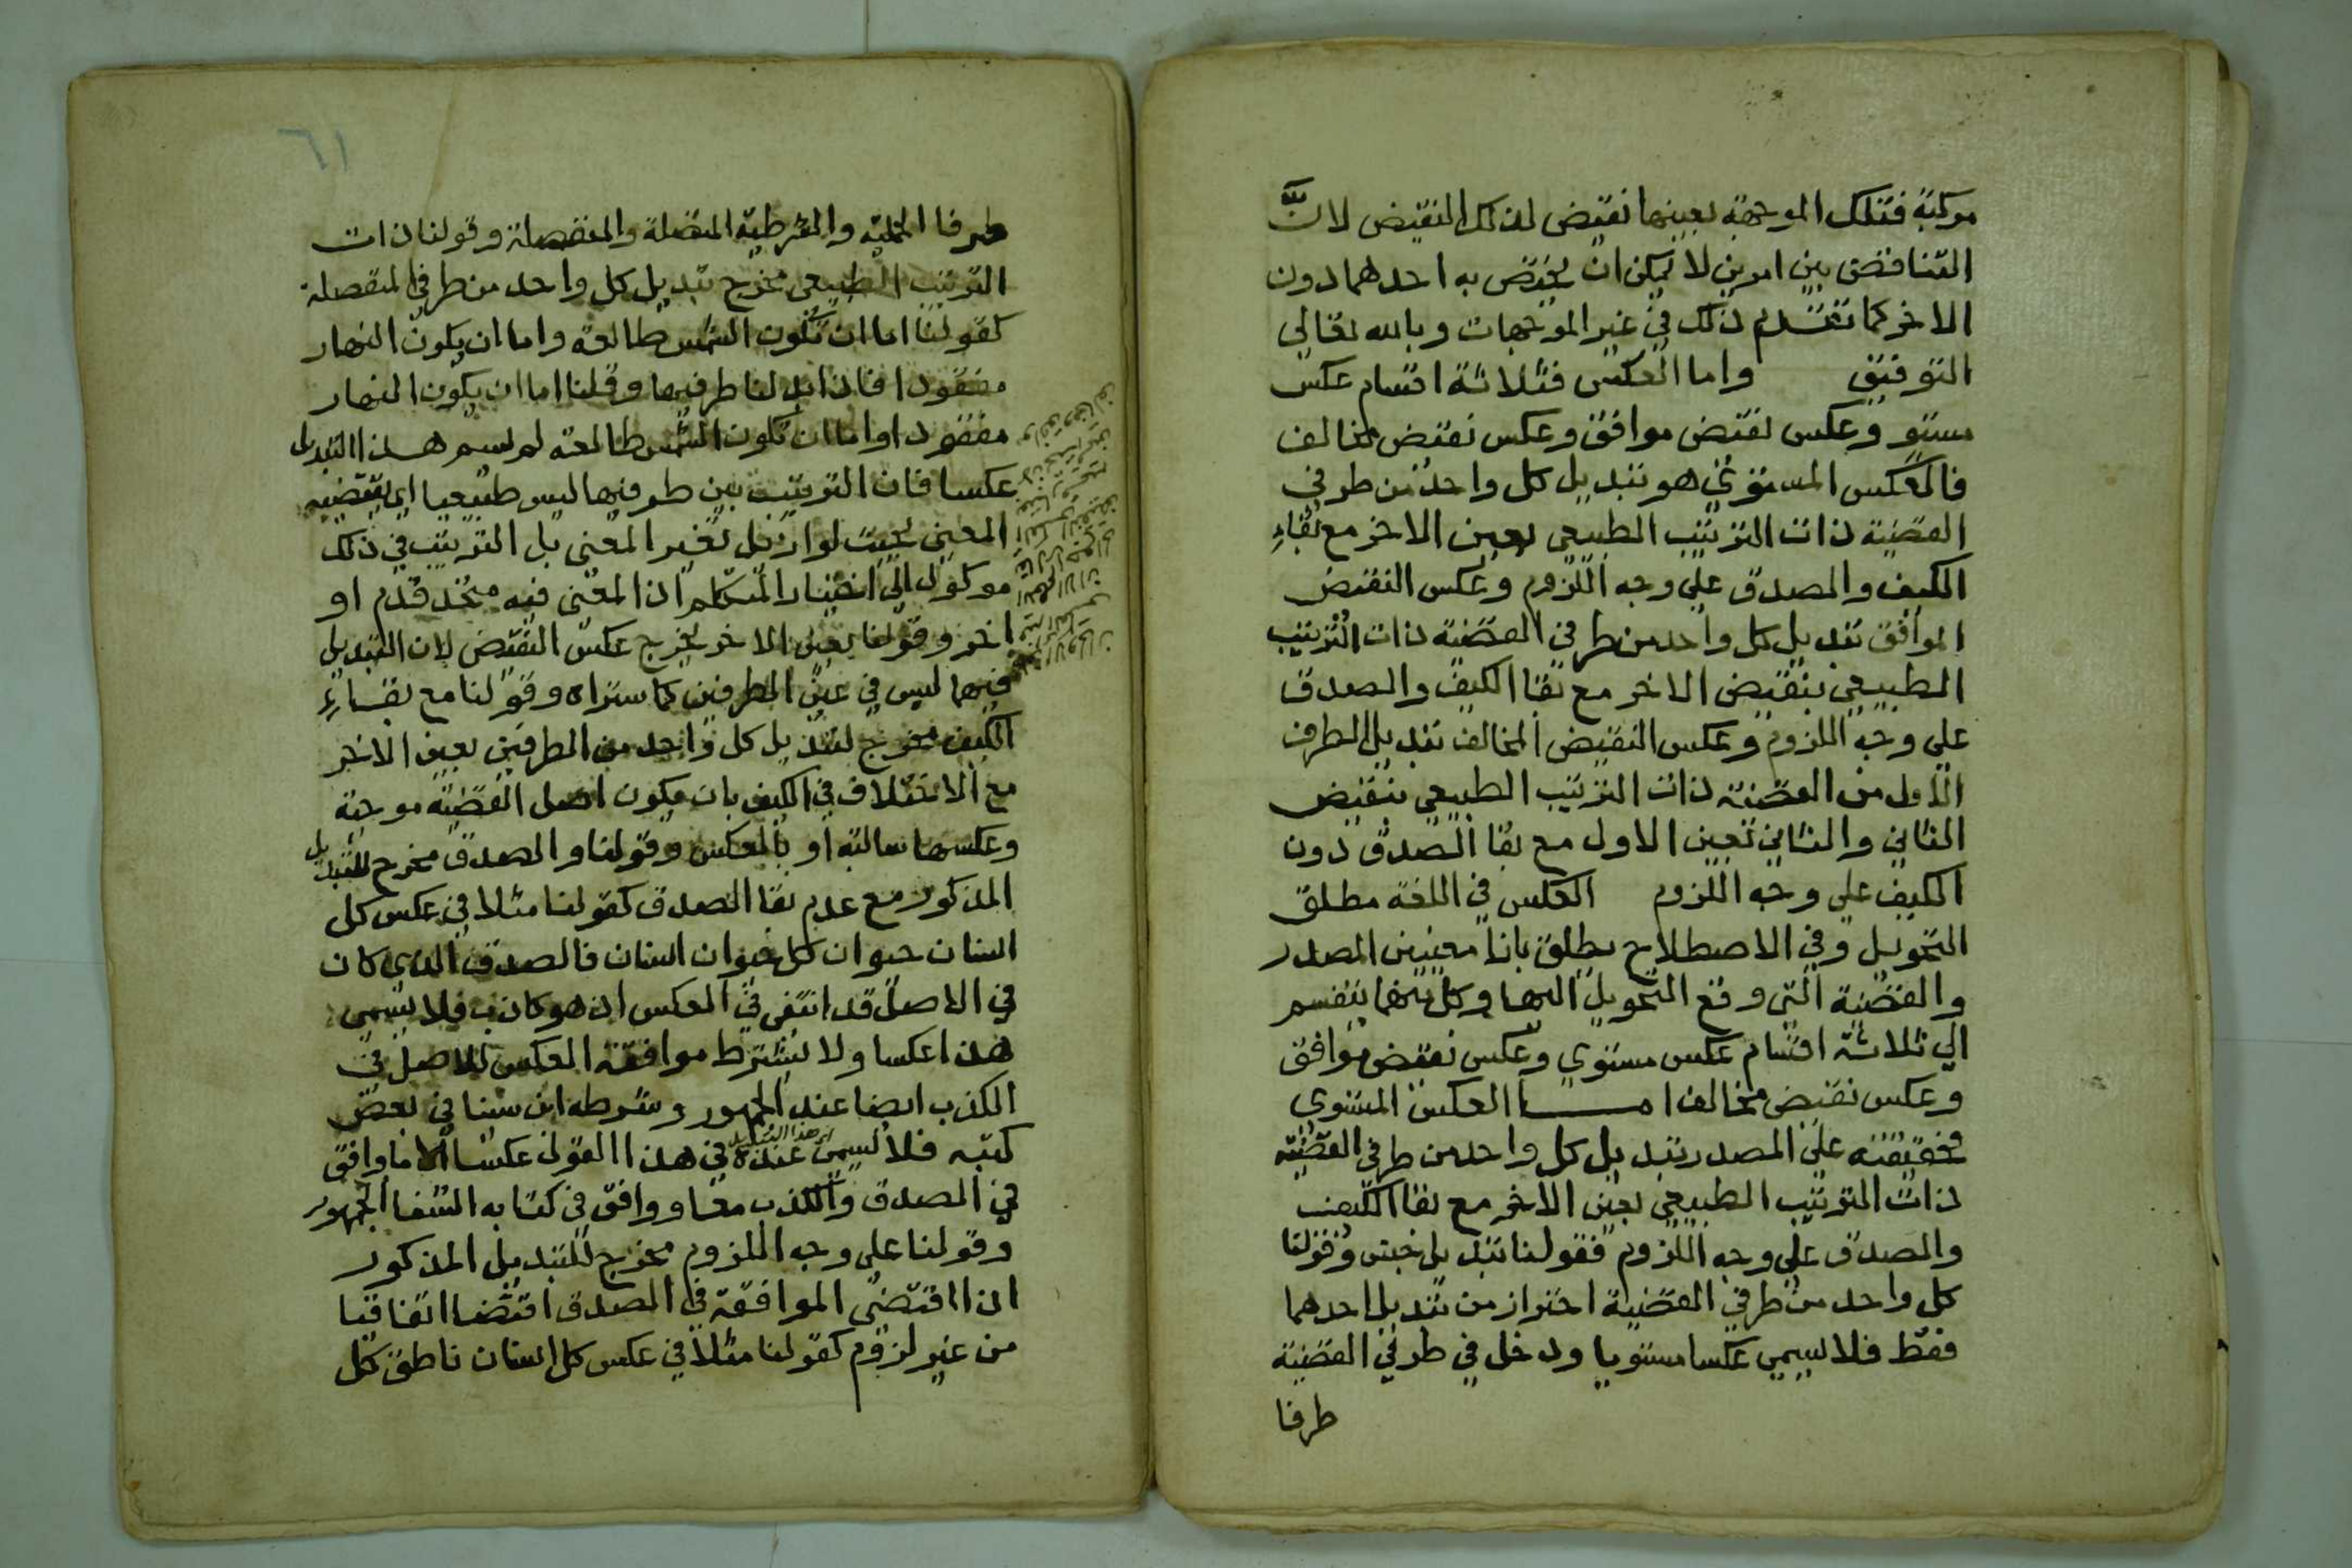 مركبة فتلك الموجهة بعينها نقيض لذلك النقيض لانَّ
التناقض بين امرين لا يمكن ان يختص به احدهما دون
الاخر كما تقدم ذلك في غير الموجهات وبالله تعالي
التوفيق واما العكس فثلاثة اقسام عكس
مستوٍ وعكس نقيض موافق وعكس نقيض مخالف
فالعكس المستوي هو تبديل كل واحد من طرفي
القضية ذات الترتيب الطبيعي بعين الاخر مع بقاءِ
الكيف والصدق علي وجه اللزوم وعكس النقيض
الموافق تبديل كل واحد من طرفي القضية ذات الترتيب
الطبيعي بنقيض الاخر مع بقا الكيف والصدق
علي وجه اللزوم وعكس النقيض المخالف تبديل الطرف
الاول من القضية ذات الترتيب الطبيعي بنقيض
الثاني والثاني بعين الاول مع بقا الصدق دون
الكيف علي وجه اللزوم العكس في اللغة مطلق
التحويل وفي الاصطلاح يطلق بازا معنيين المصدر
والقضية التي وقع التحويل اليها وكل منهما ينقسم
الي ثلاثة اقسام عكس مستوي وعكس نقيض موافق
وعكس نقيض مخالف امـــا العكس المستوي
فحقيقته علي المصدر تبديل كل واحد من طرفي القضية
ذات الترتيب الطبيعي بعين الاخر مع بقا الكيف
والصدق علي وجه اللزوم فقولنا تبديل جنس وقولنا
كل واحد من طرفي القضية احتراز من تبديل احدهما
فقط فلا يسمي عكسا مستويا ودخل في طرفي القضية
طرفا
٦١
طرفا الحملية والشرطية المتصلة والمنفصلة وقولنا ذات
الترتيب الطبيعي مخرج تبديل كل واحد من طرفي المنفصلة
كقولنا اما ان تكون الشمس طالعة واما ان يكون النهار
مفقودا فاذا بدلنا طرفيها وقلنا اما ان يكون النهار
مفقودا واما ان تكون الشمس طالعة لم يسم هذا التبديل
عكسا فان الترتيب بين طرفيها ليس طبيعيا اي يقتضيه
المعني بحيث لو ازيل تغير المعني بل الترتيب في ذلك
موكول الي اختيار المتكلم اذ المعني فيه متحد قدم او
اخر وقولنا بعين الاخر يخرج عكس النقيض لان التبديل
فيهما ليس في عين الطرفين كما ستراه وقولنا مع بقــاءِ
الكيف مخرج لتبديل كل واحد من الطرفين بعين الاخر
مع الاختلاف في الكيف بان يكون اصل القضية موجبة
وعكسها سالبة او بالعكس وقولنا والصدق مخرج للتبديل
المذكور مع عدم بقا الصدق كقولنا مثلا في عكس كل
انسان حيوان كل حيوان انسان فالصدق الذي كان
في الاصل قد انتفي في العكس اذ هو كاذب فلا يسمي
هذا عكسا ولا يشترط موافقة العكس للاصل في
الكذب ايضا عند الجمهور وشرطه ابن سينا في بعض
كتبه فلا يسمي عنده في هذا القول عكسا الا ما وافق
اي هذا التبديل
في الصدق والكذب معا ووافق في كتابه الشفا الجمهور
وقولنا علي وجه اللزوم مخرج للتبديل المذكور
اذا اقتضي الموافقة في الصدق اقتضا اتفاقيا
من غير لزوم كقولنا مثلا في عكس كل انسان ناطق كل